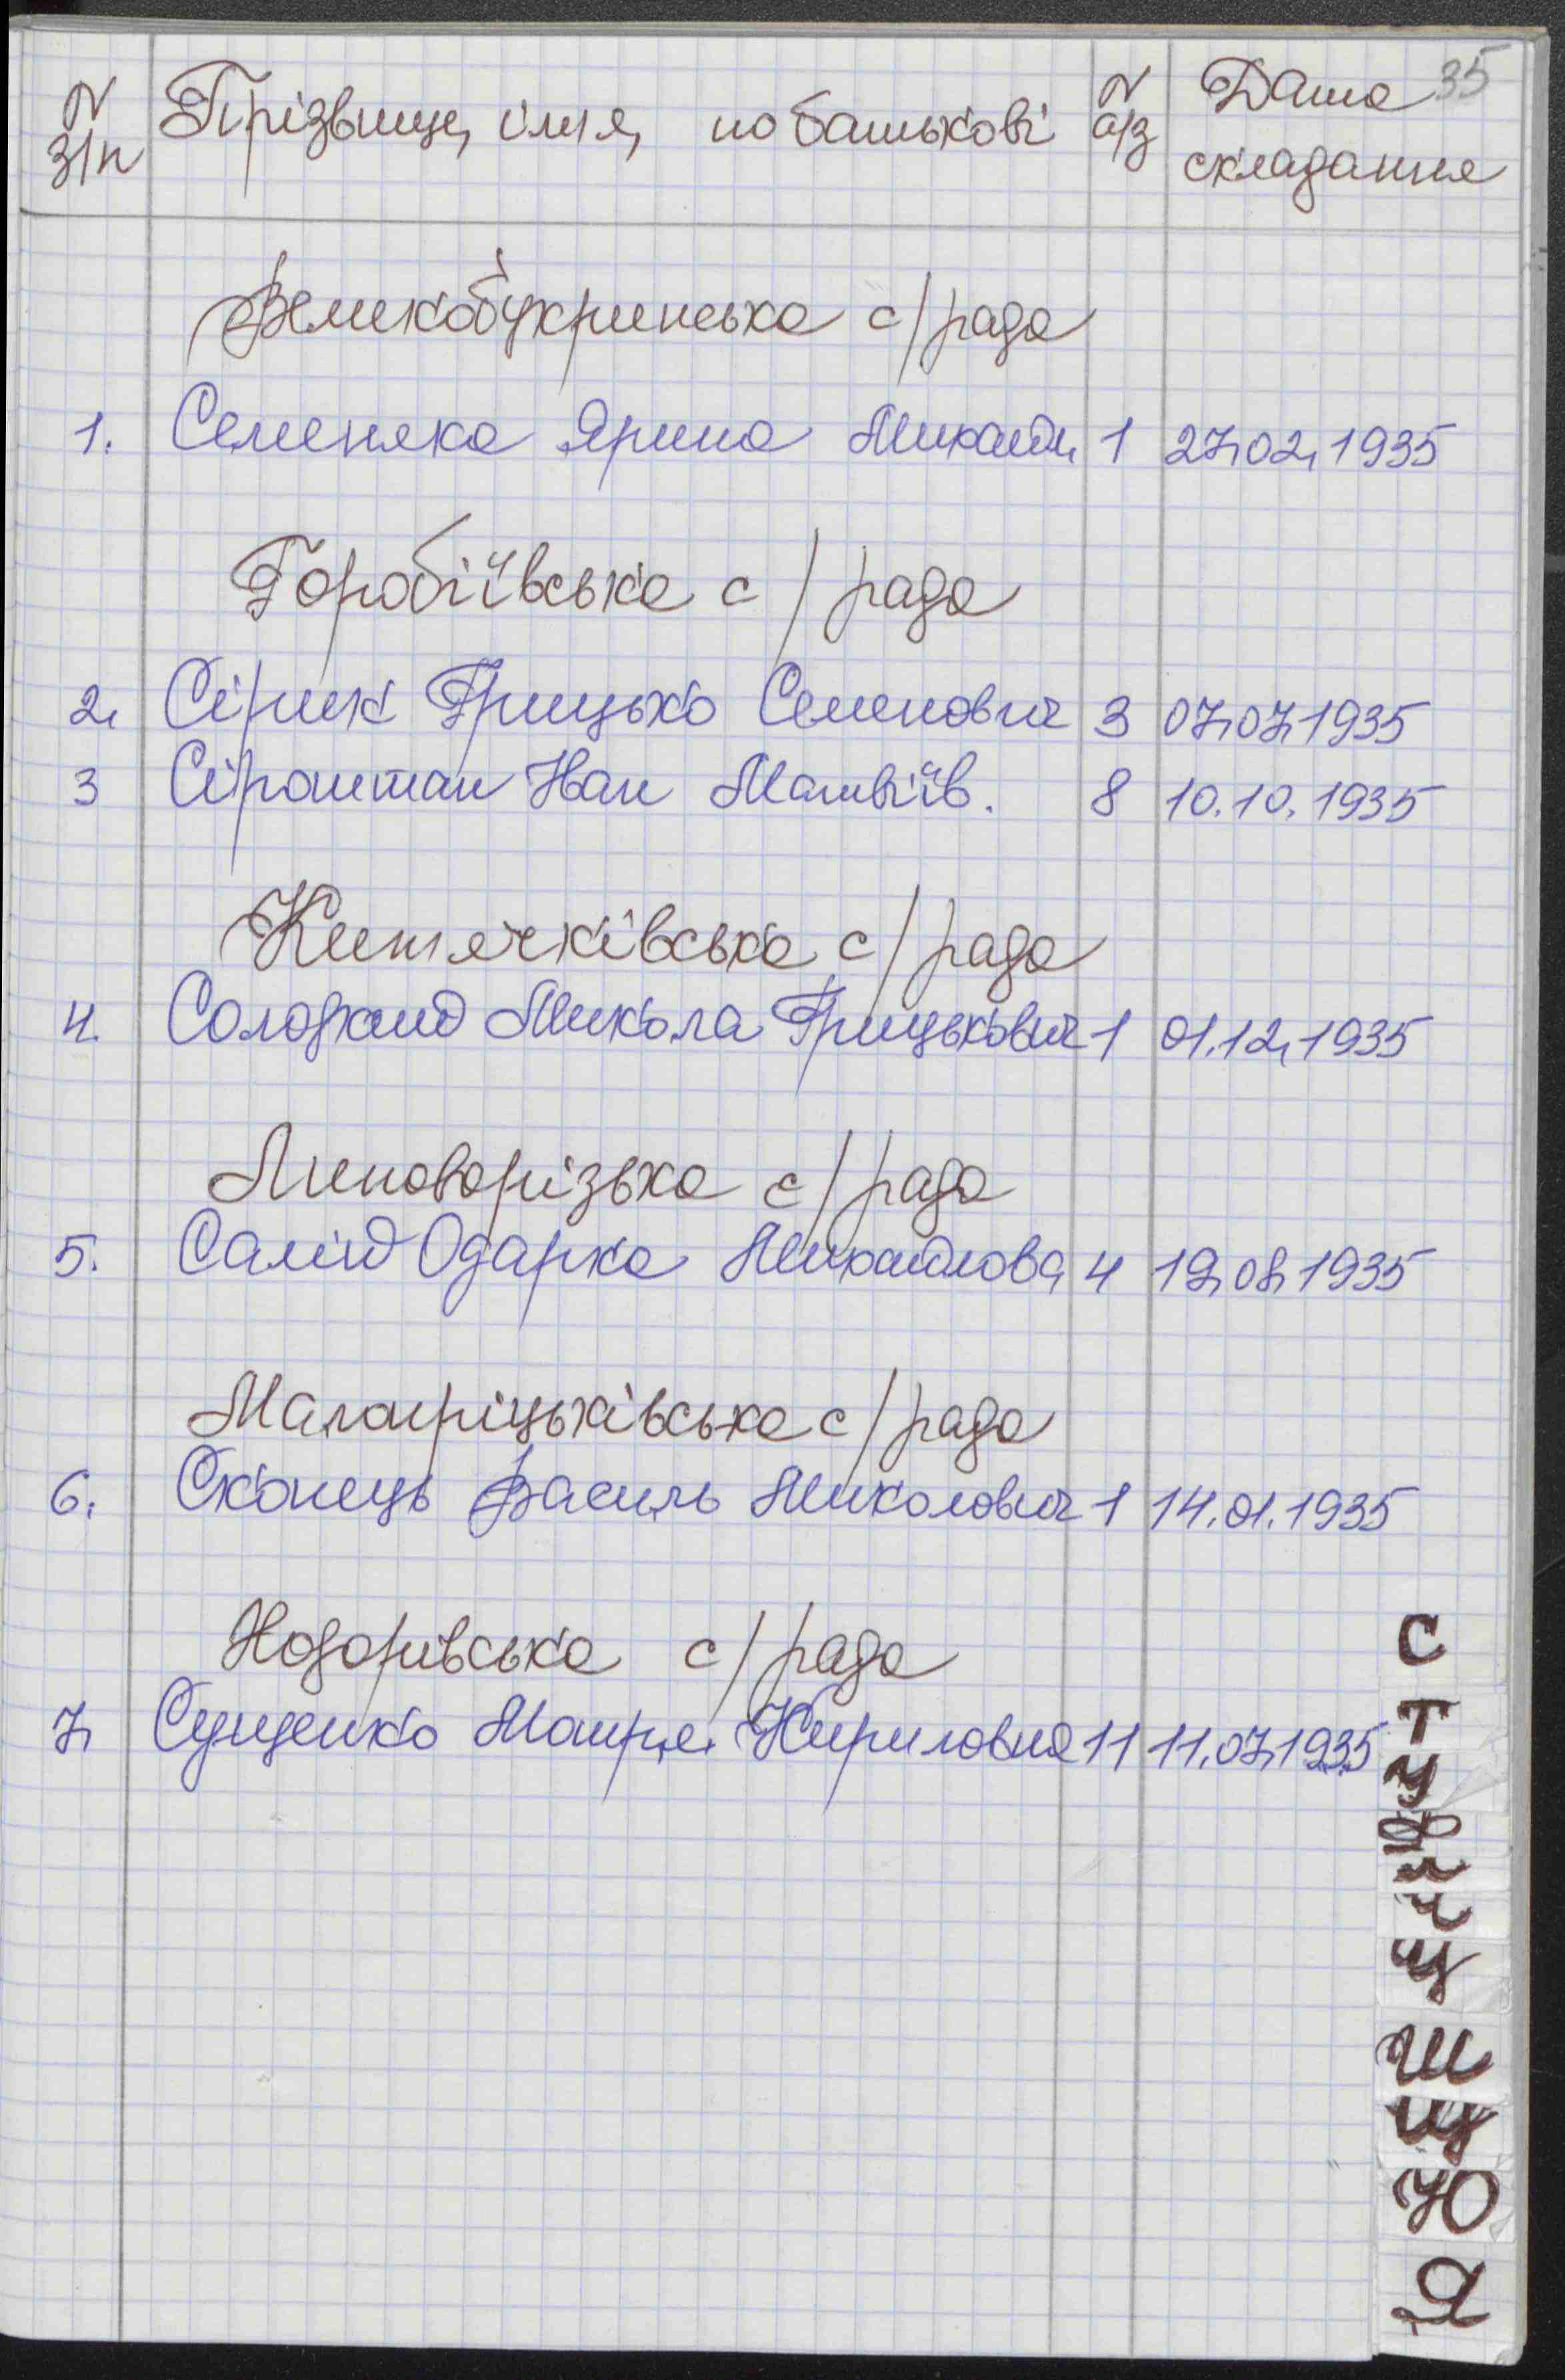 35
N з/п Прізвище, ім'я, по батькові N а/з Дата складання
Великобукринська с/рада
1. Семеняка Ярина Михайл. 1 27.02.1935
Горобіївська с/рада
2. Сірик Грицько Семенович 3 07.07.1935
3 Сіроштан Іван Матвіїв. 8 10.10.1935
Китячківська с/рада
4. Солодкий Микола Грицькович 1 01.12.1935
Липоворізька с/рада
5. Салій Одарка Михайлова 4 19.08.1935
Малоприцьківська с/рада
6. Сконець Василь Миколович 1 14.01.1935
Ходорівська с/рада
7. Сущенко Мотря Кириловна 11 11.07.1935
С
Т
У
Ф
Х
Ч
Ц
Ш
Щ
Ю
Я